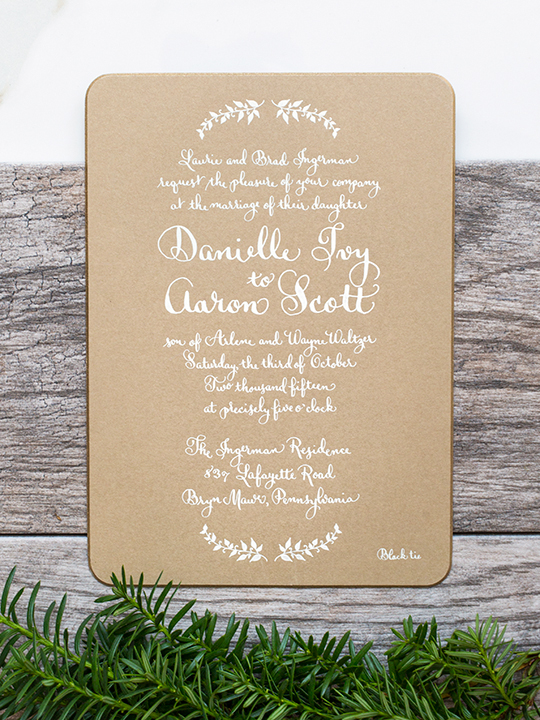 Laurie and Brad Ingerman
request the pleasure of your company
at the marriage of their daughter
Danielle Ivy
to
Aaron Scott
son of Arlene and Wayne Waltzer
Saturday, the third of October
Two thousand fifteen
at precisely five o'clock
The Ingerman Residence
839 Lafayette Road
Bryn Mawr, Pennsylvania
Black tie